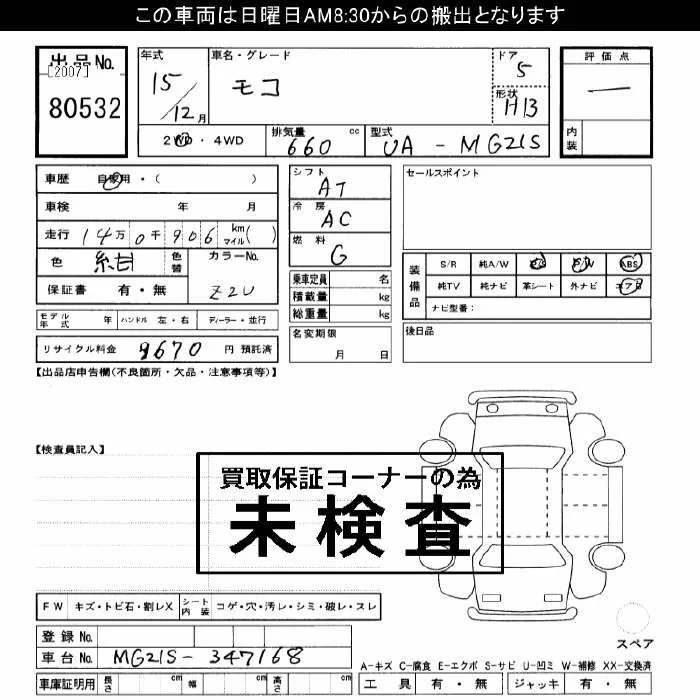 この車両は日曜日AM8:30からの搬出となります
出品No.
[2007]
80532
年式
15/12月
車名・グレード
モコ
ドア
5
形状
HB
評価点
一
内装
2WD・4WD
排気量 660 cc
型式 UA - MG21S
車歴 自家用・( )
車検 年 月
走行 14万0千906 km マイル( )
色 紺 色替
カラーNo.
Z2U
保証書 有・無
シフト
AT
冷房
AC
燃料
G
乗車定員 名
積載量 kg
総重量 kg
セールスポイント
装備品
S/R 純A/W PS P/W ABS
純TV 純ナビ 革シート 外ナビ エアB
ナビ型番:
モデル年式 年 ハンドル 左・右 ディーラー・並行
名変期限
月 日
後日品
リサイクル料金 9670 円 預託済
【出品店申告欄(不良箇所・欠品・注意事項等)】
【検査員記入】
買取保証コーナーの為
未検査
FW キズ・トビ石・割レX シート内装 コゲ・穴・汚レ・シミ・破レ・スレ
スペア
登録No.
車台No. MG21S-347168
A-キズ C-腐食 E-エクボ S-サビ U-凹ミ W-補修 XX-交換済
車庫証明用 長さ cm 幅 cm 高さ cm
工具 有・無 ジャッキ 有・無